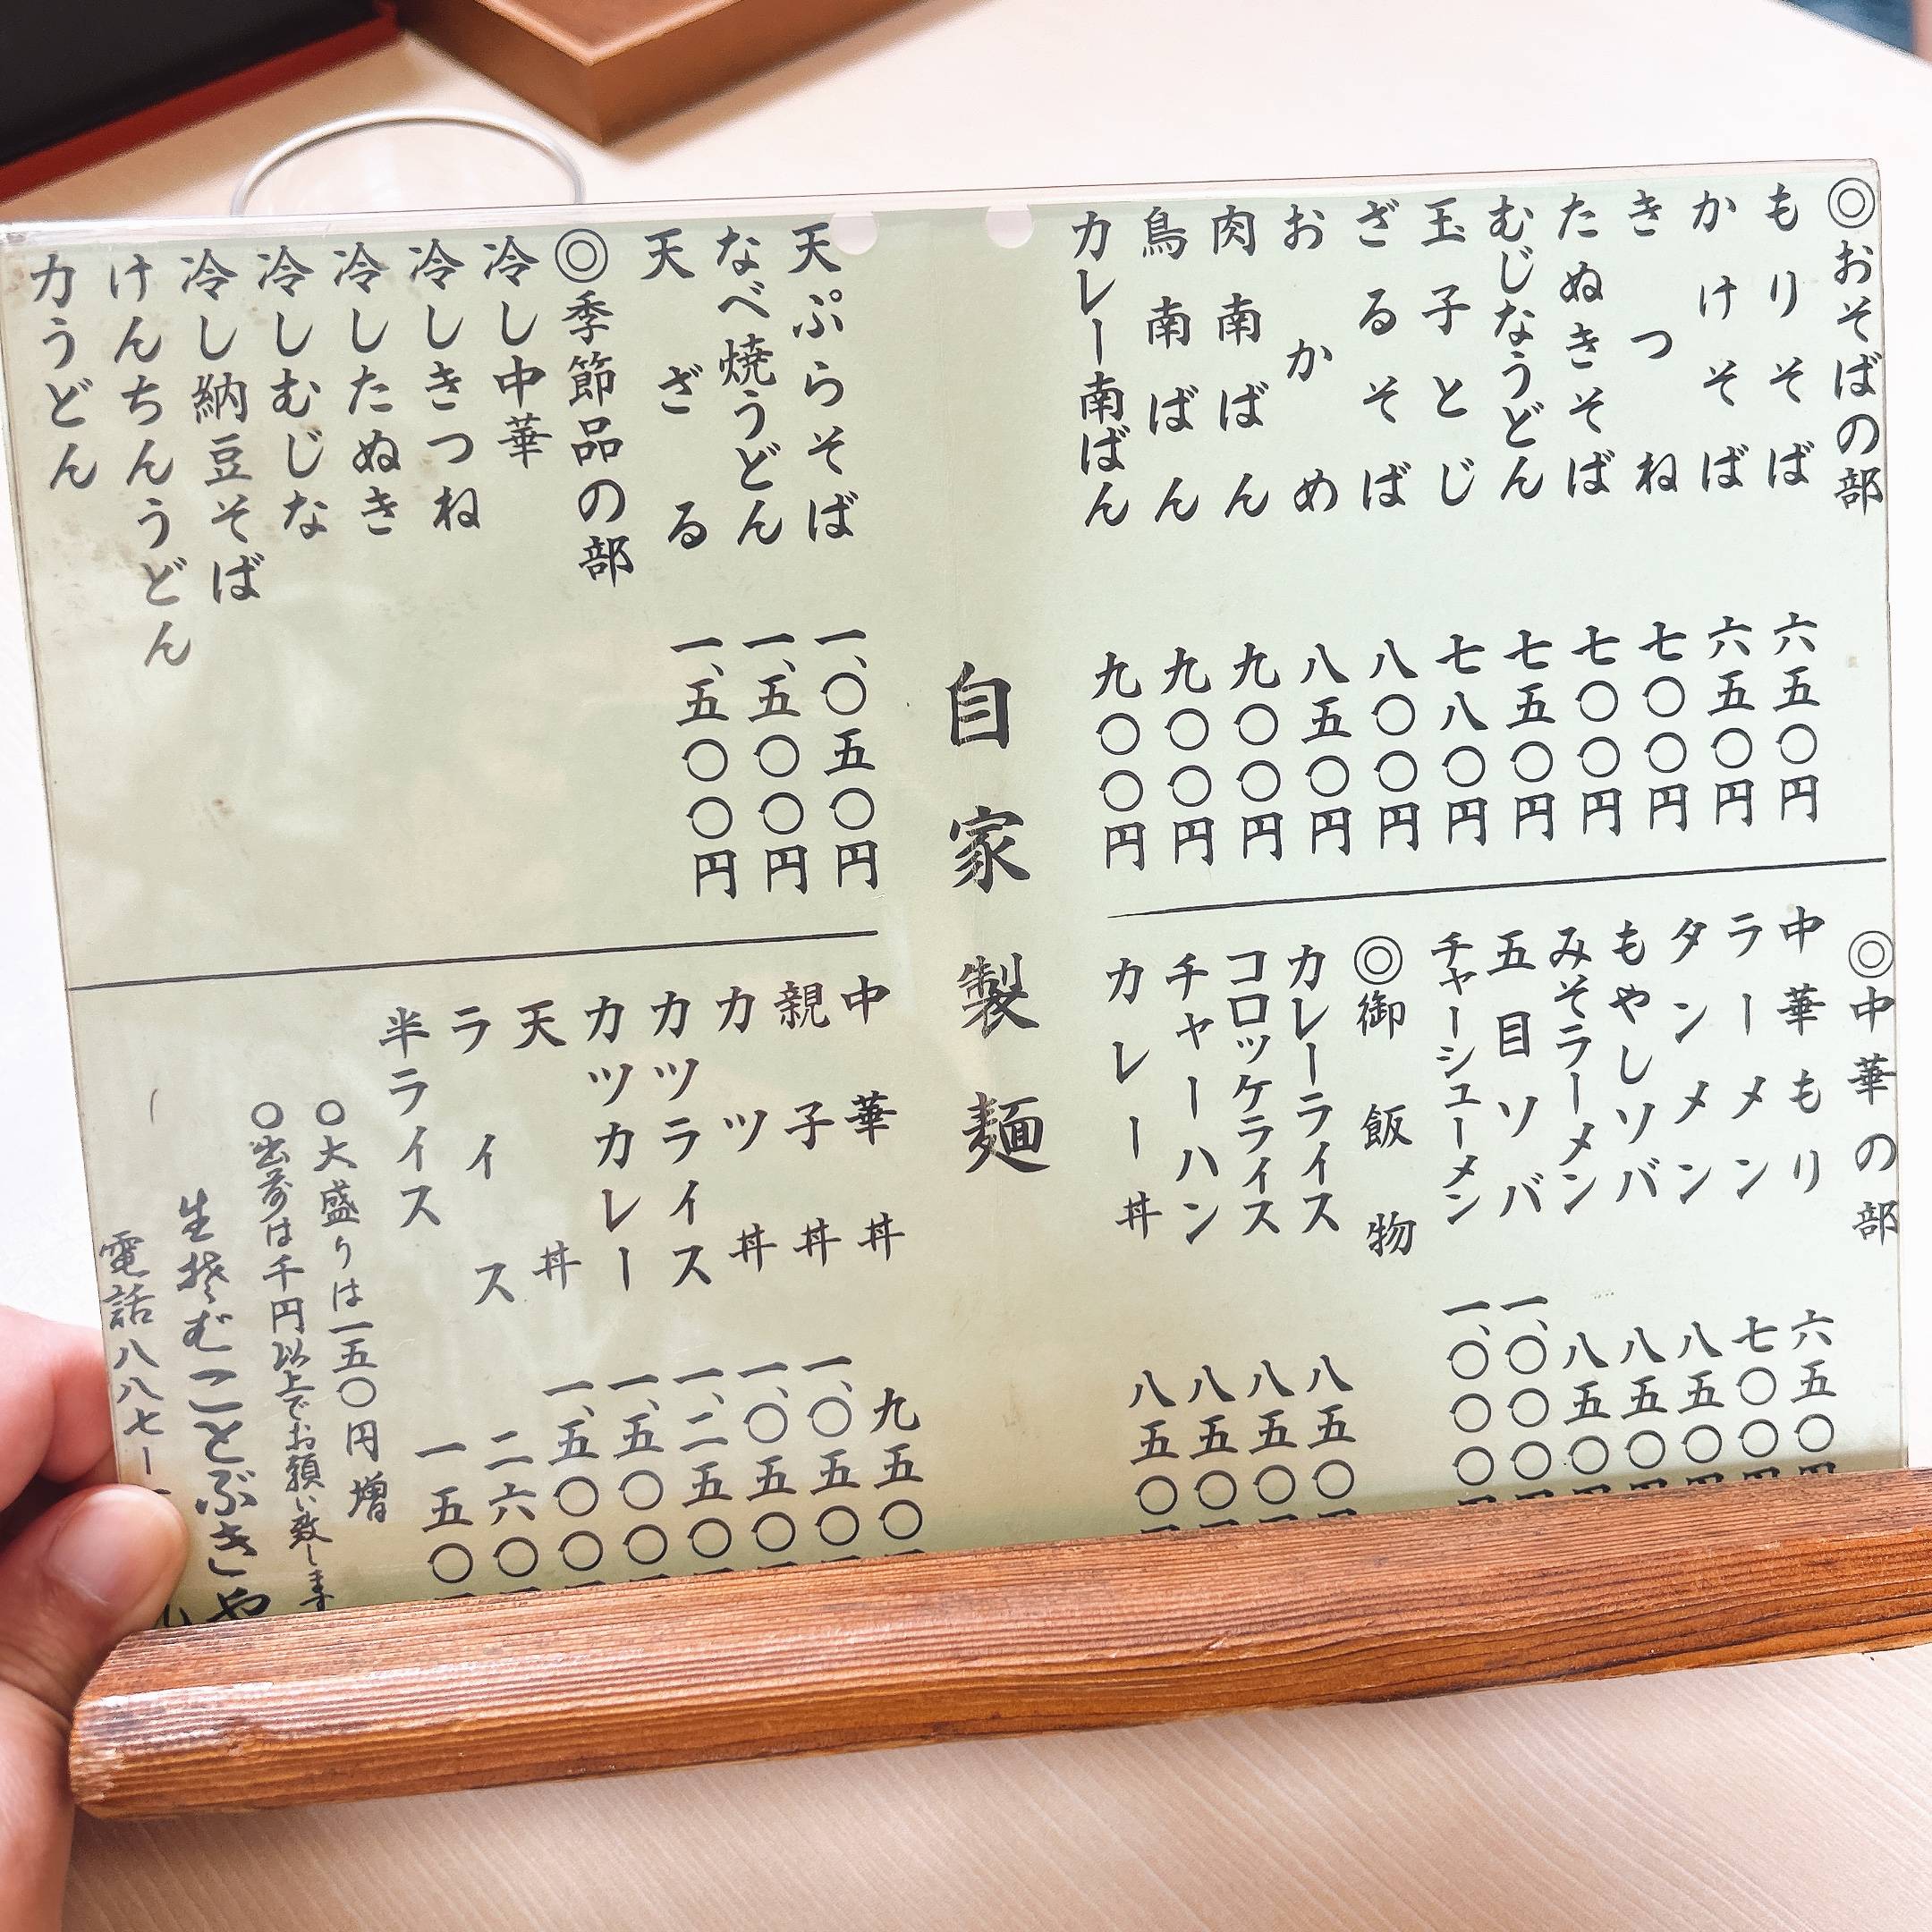 ◎おそばの部
もりそば 六五〇円
かけそば 六五〇円
きつね 七〇〇円
たぬきそば 七〇〇円
むじなうどん 七五〇円
玉子とじ 七八〇円
ざるそば 八〇〇円
おかめ 八五〇円
肉南ばん 九〇〇円
鳥南ばん 九〇〇円
カレー南ばん 九〇〇円
◎中華の部
中華もり 六五〇円
ラーメン 七〇〇円
タンメン 八五〇円
もやしソバ 八五〇円
みそラーメン 八五〇円
五目ソバ 一、〇〇〇円
チャーシューメン 一、〇〇〇円
◎御飯物
カレーライス 八五〇
コロッケライス 八五〇
チャーハン 八五〇
カレー丼 八五〇
自家製麺
天ぷらそば 一、〇五〇円
なべ焼うどん 一、五〇〇円
天ざる 一、五〇〇円
◎季節品の部
冷し中華
冷しきつね
冷したぬき
冷しむじな
冷し納豆そば
けんちんうどん
力うどん
中華丼 九五〇
親子丼 一、〇五〇
カツ丼 一、〇五〇
カツライス 一、二五〇
カツカレー 一、五〇〇
天丼 一、五〇〇
ライス 二六〇
半ライス 一五〇
○大盛りは一五〇円増
○出前は千円以上でお願い致します
生そば ことぶきや
電話 八八七ー